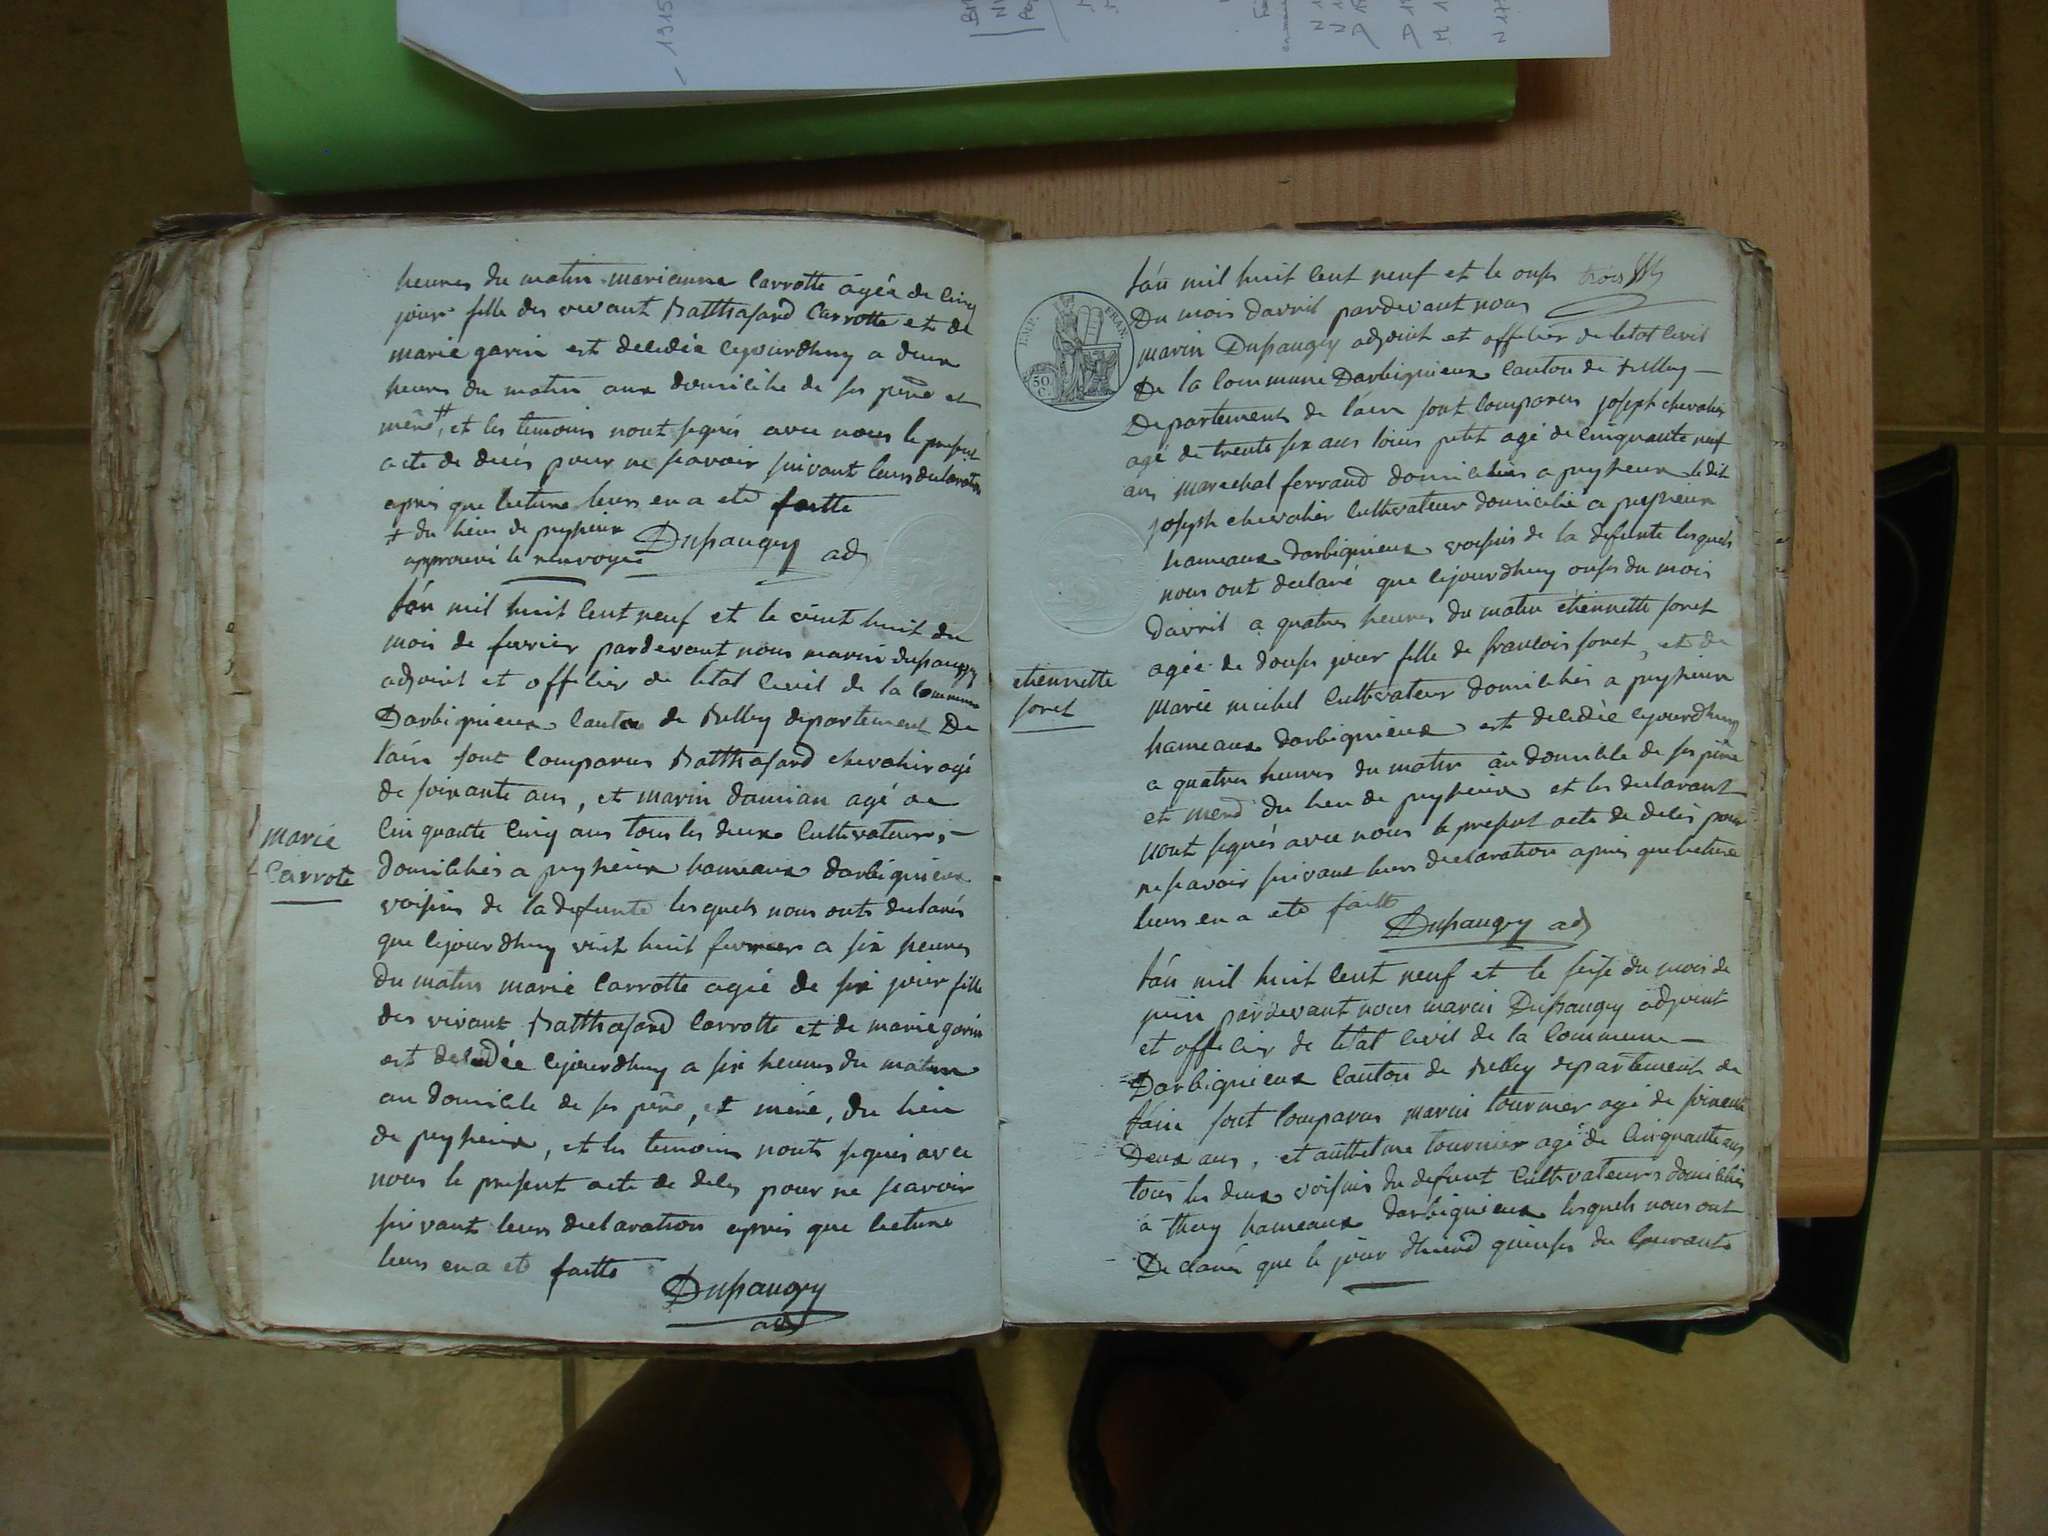 heures du matin marieanne Carrotte agée de cinq
jour fille des vivant Batthasard Carrotte et de
marie garin est decedée cejourdhuy a deux
heures du matin aux domicille de ses père et
mère, et les temoins nont signés avec nous le present
acte de decés pour ne scavoir suivant leurs declaration
apres que lecture leurs en a eté faitte
+ du lieu de peyzieux
approuvé le renvoye Dupaugey adj
Lán mil huit cent neuf et le vint huit du
mois de fevrier pardevant nous marin dupaugey
adjoint et officier de letat civil de la Commune
Darbignieux canton de Belley departement De
l'ain sont comparus Batthasard chevalier agé
de soixante ans, et marin damian agé de
cinquante cinq ans tous les deux cultivateurs,
marie
Carrote
domiciliés a peyzieux hameaux darbignieux
voisins de la defunte lesquels nous onts declarés
que cejourdhuy vint huit fevrier a six heures
du matin marie Carrotte agée de six jour fille
des vivant Batthasard Carrotte et de marie garin
est decedée cejourdhuy a six heures du matin
au domicile de ses père, et mère, du lieu
de peyzieux, et les temoins nonts signés avec
nous le present acte de deces pour ne scavoir
suivant leurs declaration apres que lecture
leurs en a eté faitte
Dupaugey
adj
Lán mil huit cent neuf et le onze trois
Du mois davril pardevant nous
EMP. FRAN.
50 C.
marin Dupaugey adjoint et officier de letat civil
De la Commune Darbignieux canton de Belley
Departement de láin sont comparus joseph chevalier
agé de trente six ans loius petit agé de cinquante neuf
ans marechal ferrand domiciliés a peyzieux ledit
joseph chevalier cultivateur domicilié a peyzieux
hameaux darbignieux voisins de la defunte lesquels
nous ont declaré que cejourdhuy onze du mois
davril a quatres heures du matin étiennette foret
etiennette
foret
agée de douze jour fille de francois foret, et de
marie michel cultivateur domiciliés a peyzieux
hameaux darbignieux est decedée cejourdhuy
a quatres heures du matin au domicile de ses père
et mere du lieu de peyzieux et les declarant
nont signés avec nous le present acte de decés pour
ne scavoir suivant leurs declaration apres que lecture
leurs en a eté faitte
Dupaugey adj
Lán mil huit cent neuf et le seize du mois de
juin pardevant nous marin Dupaugey adjoint
et officier de letat civil de la Commune
Darbignieux canton de Belley departement de
láin sont comparus marin tournier agé de soixante
Deux ans, et anthelme tournier agé de cinquante ans
tous les deux voisins du defunt cultivateurs domiciliés
a thuy hameaux darbignieux lesquels nous ont
Declaré que le jour dhierd quinze du courants